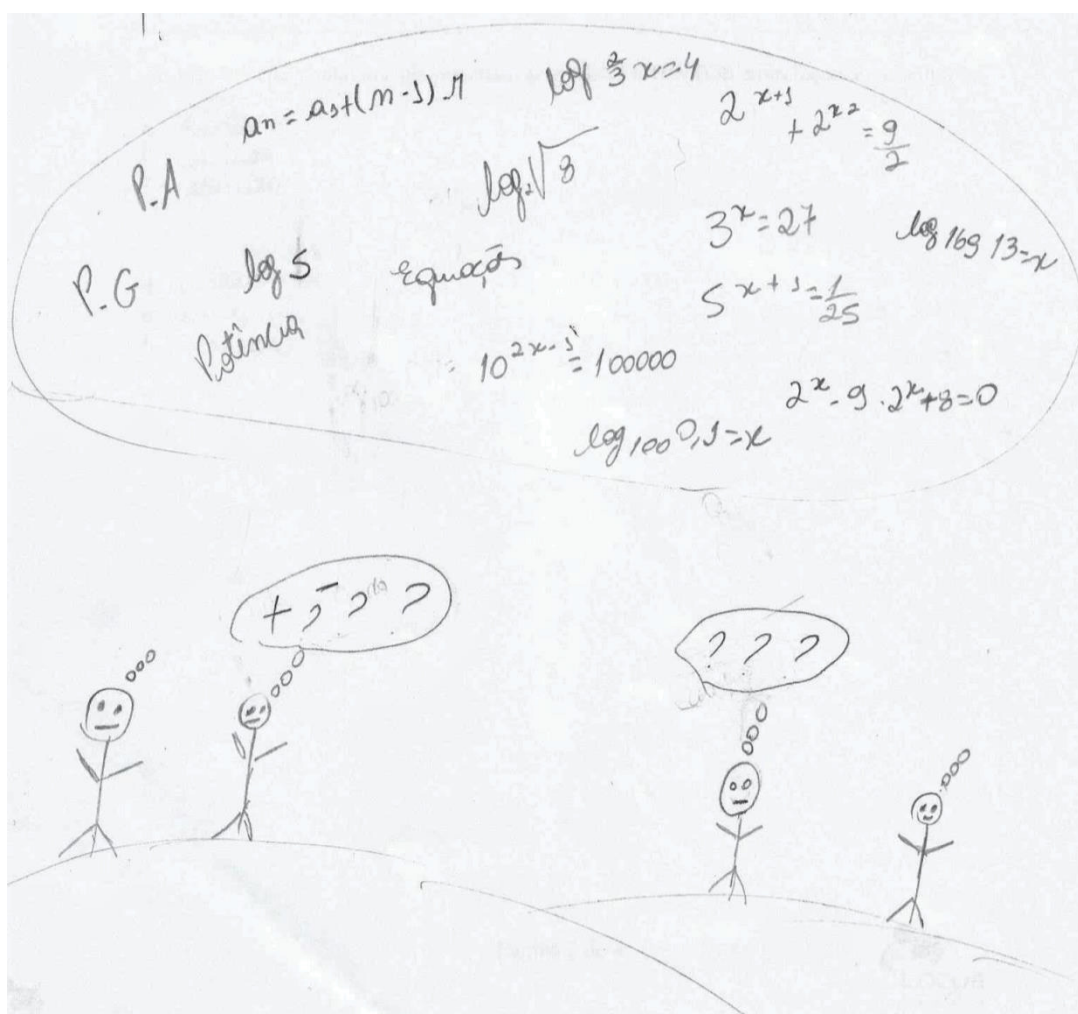 an = a1+(n-1).r
log 2/3 x=4
2^x+1 + 2^x-2 = 9/2
P.A
log2√8
3^x=27
log 169 13=x
P.G
log 5
Equação
5^x+1=1/25
Potência
= 10^2x-1=100000
2^x-9.2^x+8=0
log 100 0,1=x
+ , - , ?
? ? ?